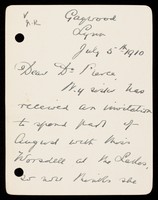 Gaywood
Lynn
July 5th 1910
Dear Dr Pierce
My sister has
received an invitation
to spend part of
August with Miss
Worsdell at the Lodes,
so will
she